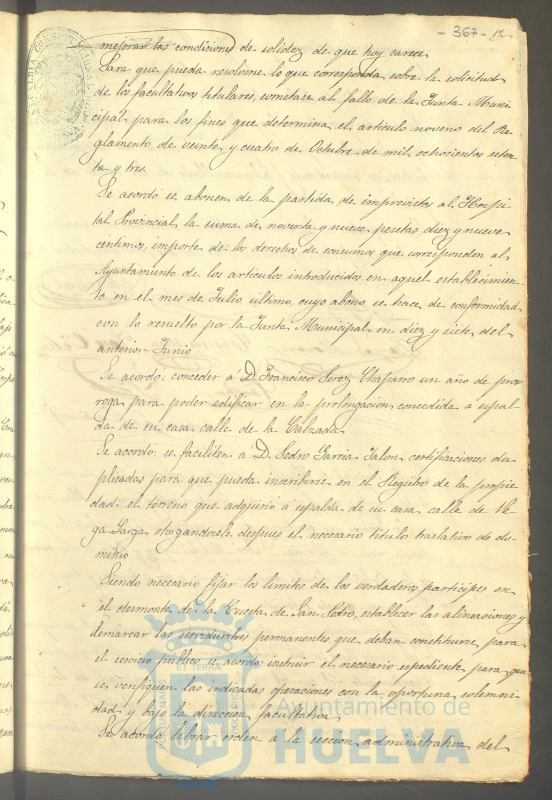 - 367 - 12
mejorar las condiciones de solidez de que hoy carece
Para que pueda resolverse lo que corresponda sobre la solicitud
de los facultativos titulares, sométase al fallo de la Junta Muni-
cipal para los fines que determina el artículo noveno del Re-
glamento de veinte y cuatro de Octubre de mil ochocientos seten-
ta y tres.
Se acordó se abonen de la partida de imprevistos al Hospi-
tal Provincial la suma de noventa y nueve pesetas diez y nueve
centimos, importe de los derechos de consumos que corresponden al
Ayuntamiento de los articulos introducidos en aquel establecimien-
to en el mes de Julio ultimo, cuyo abono se hace de conformidad
con lo resuelto por la Junta Municipal en diez y siete del
anterior Junio
Se acordó: conceder á D. Francisco Perez Chaparro un año de pror-
roga para poder edificar en la prolongacion concedida a espal-
da de su casa calle de la Calzada
Se acordó: se faciliten a D. Pedro Garcia Jalon certificaciones du-
plicadas para que pueda inscribirse en el Registro de la propie-
dad el terreno que adquirió á espalda de su casa calle de Ve-
ga Larga otorgandosele despues el necesario título traslativo de do-
minio
Siendo necesario fijar los limites de los verdaderos participes en
el desmonte de la Cuesta de San Pedro, establecer las alineaciones y
demarcar las servidumbres permanentes que deban constituirse para
el servicio publico se acordó: instruir el necesario espediente para que
se verifiquen las indicadas operaciones con la oportuna solemni-
dad y bajo la direccion facultativa
Se acordó librar orden á la seccion administrativa del
Ayuntamiento de
HUELVA